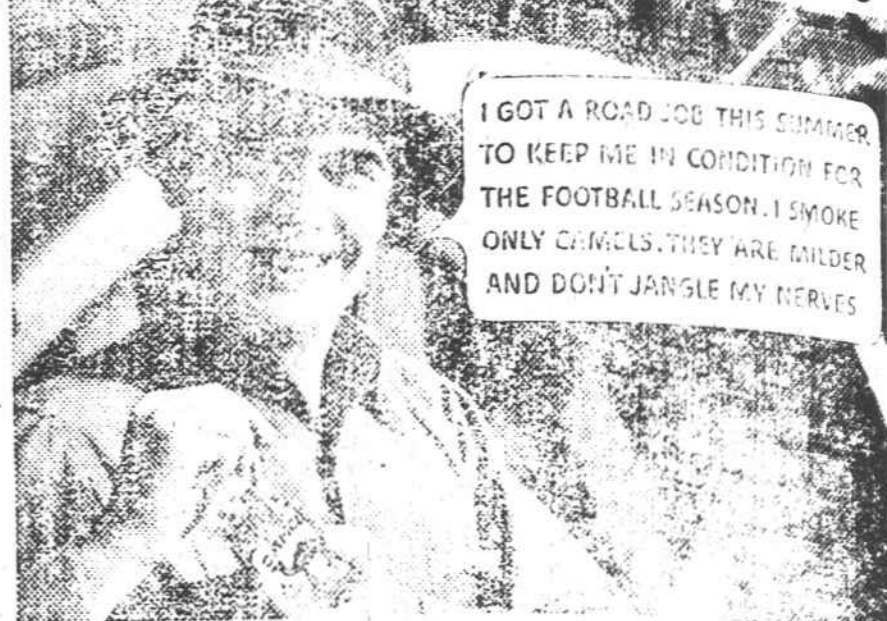 I GOT A ROAD JOB THIS SUMMER
TO KEEP ME IN CONDITION FOR
THE FOOTBALL SEASON. I SMOKE
ONLY CAMELS. THEY ARE MILDER
AND DON'T JANGLE MY NERVES